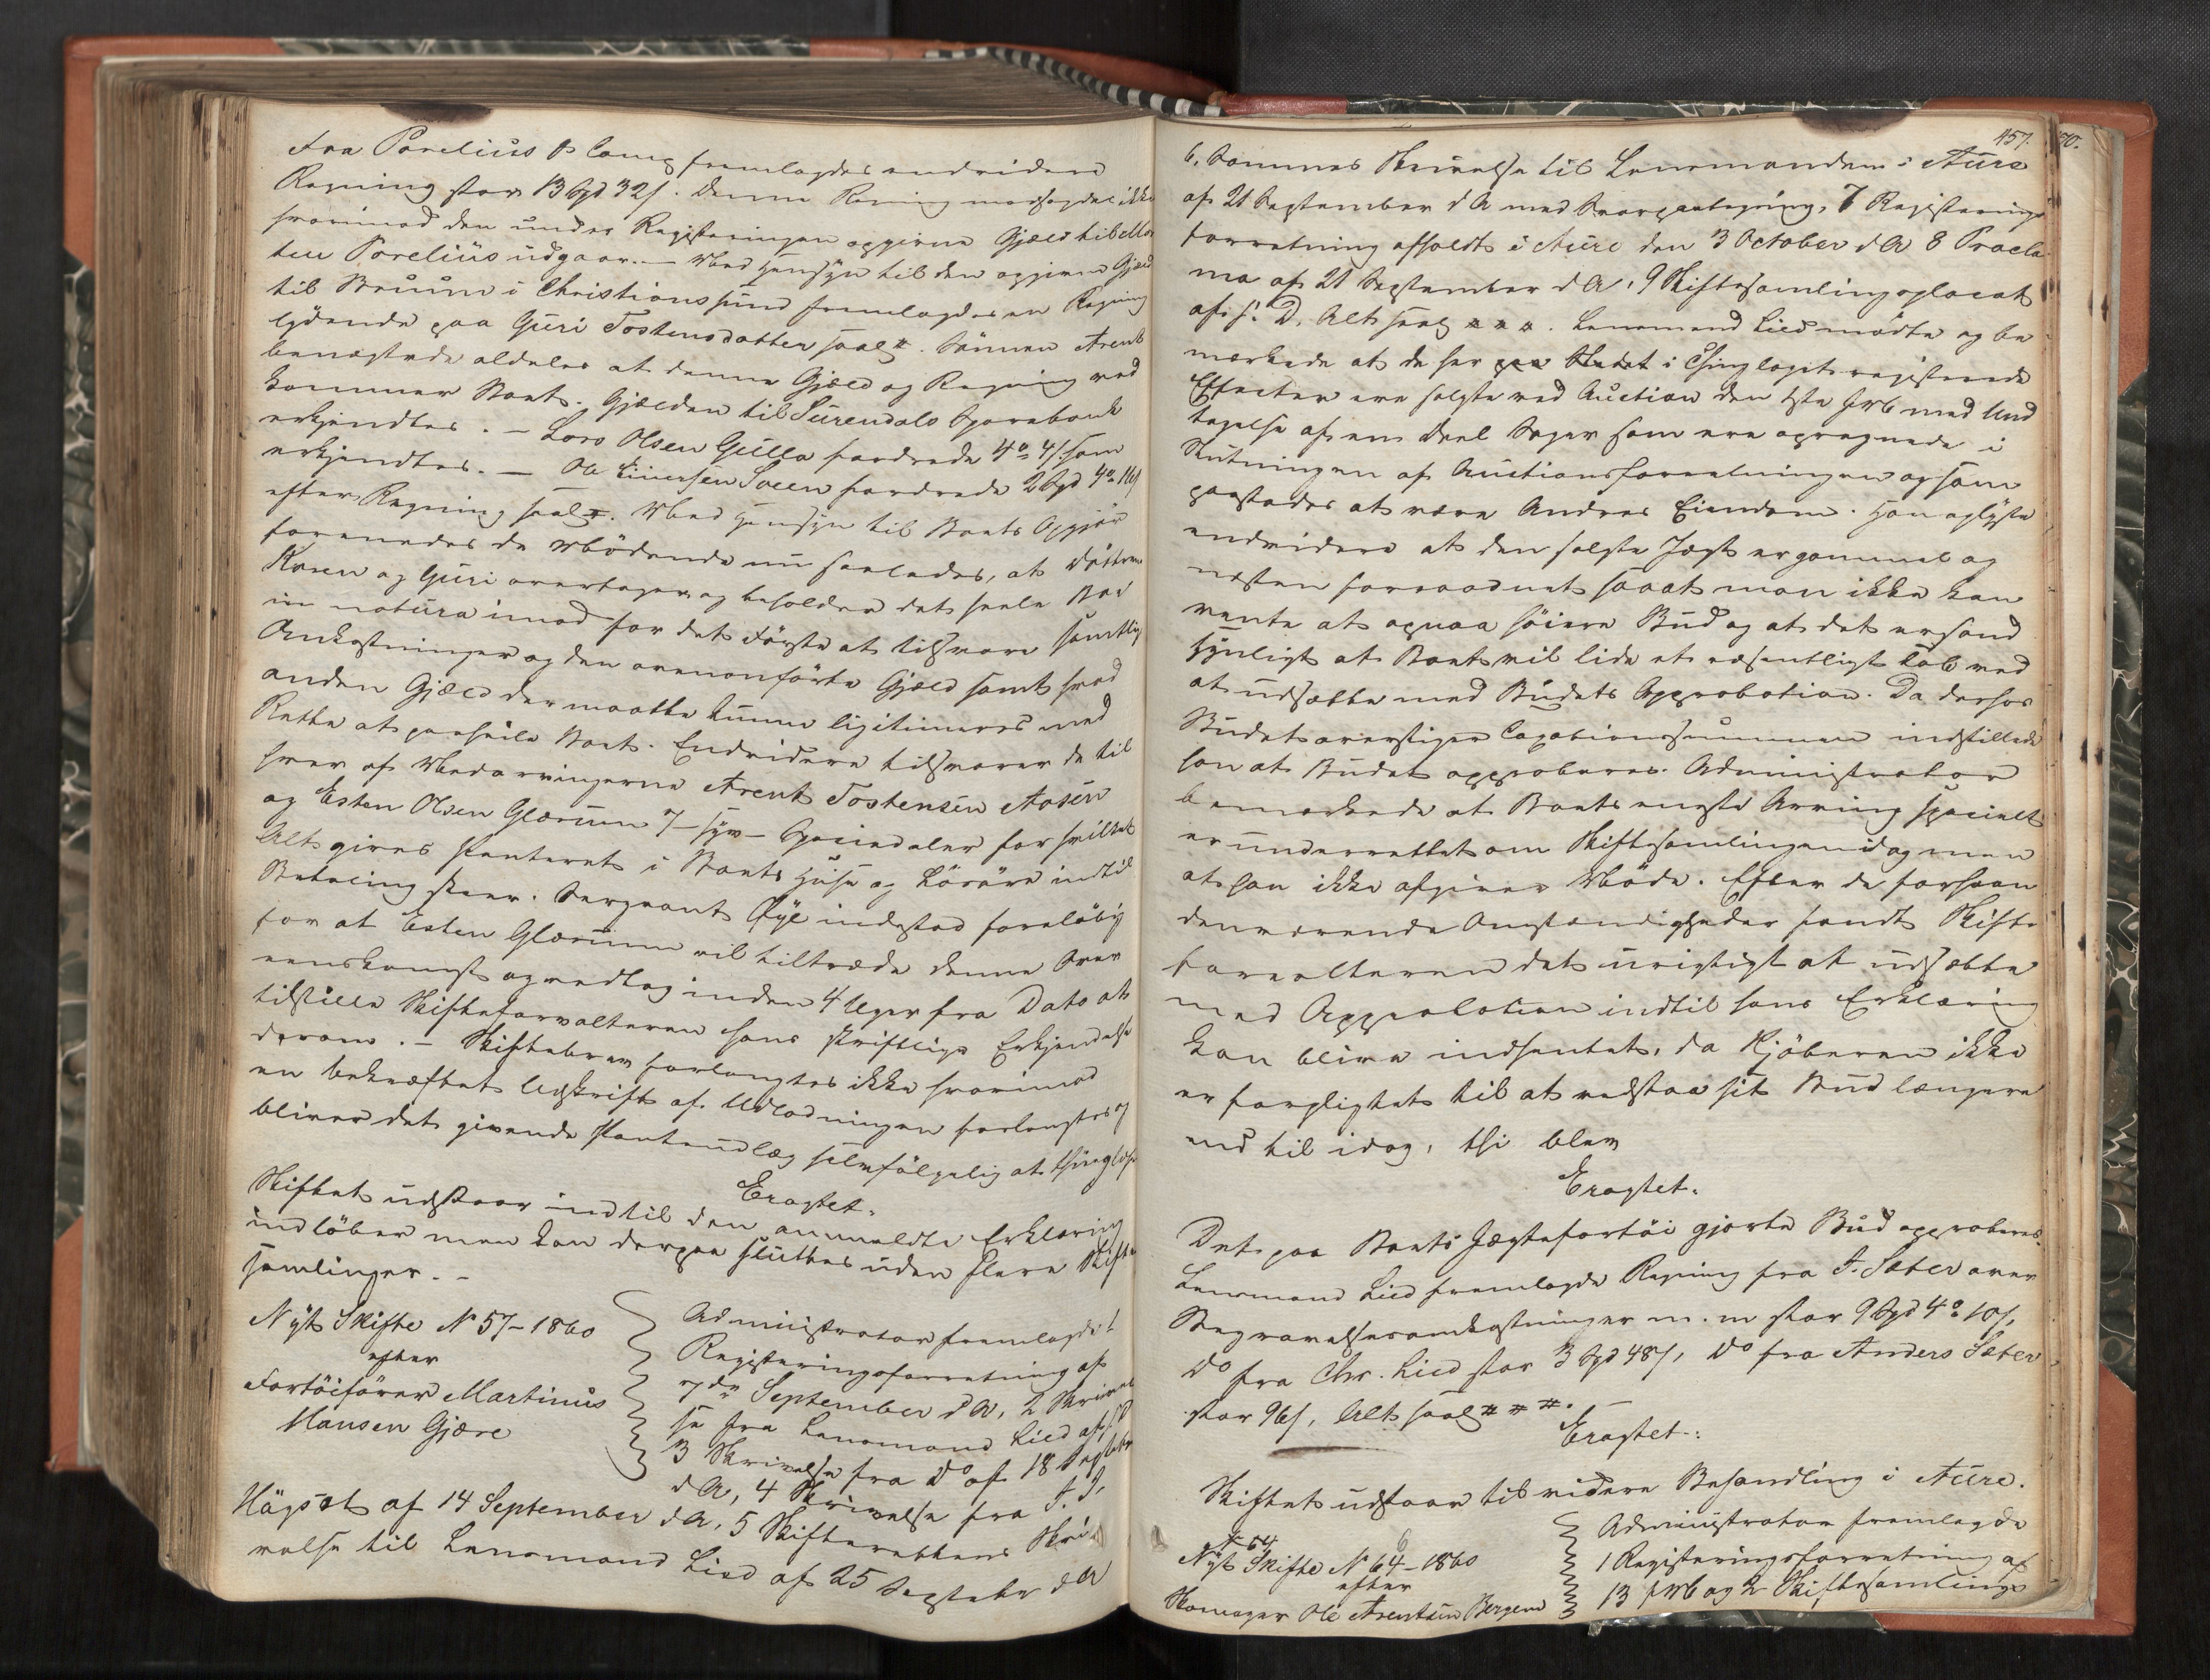 Fra Parelius & Comp fremlagdes endvidere
Regning stor 13 Spd 32 s. Denne Regning modsagdes ikke
hvorimod den under Registeringen opgivne Gjæld til
Parelius udgaar. – Med Hensyn til den opgivne Gjæld
til Bruun i Christianssund fremlagdes en Regning
lydende paa Guri Tostensdatter saal. #. Sønnen Arent
benægtede aldeles at denne Gjæld og Regning ved
kommer Boet. Gjælden til Surendals Sparebank
erkjendtes. – Lars Olsen Gulla fordrede 4 s. som
erkjendtes. – Ole Sæen fordrede 2 Spd
efter Regning saal. #. Med Hensyn til Boets Opgjør
forenedes de Mødende nu saaledes, at Døttrene
Karen og Guri overtager og beholder det hele Bo
in natura imod for det Første at tilsvare samtlige
Omkostninger og den ovenanførte Gjæld samt hvad
anden Gjæld der maatte kunne legitimeres med
Rette at paahvile Boet. Endvidere tilsvarer de til
hver af Medarvingerne Arent Tostensen Aasen
og Esten Olsen Glærum 7 – syv – Speciedaler for hvilket
Alt gives Panteret i Boets Huse og Løsøre indtil
Betaling skeer. Sergeant Øye indestod foreløbig
for at Esten Glærum vil tiltræde denne Over
eenskomst og vedtog inden 4 Uger fra Dato at
tilstille Skifteforvalteren hans skriftlige Erkjendelse
derom. – Skiftebrev forlangtes ikke hvorimod
en bekræftet Udskrift af Udlodningen forlangtes og
bliver det givende Panteudlæg selvfølgelig at thinglyse
Eragtet:
Skiftet udstaar indtil den anmeldte Erklæring
indløber men kan derpaa sluttes uden flere Skifte
samlinger. –
Nyt Skifte N 57 – 1860
efter
Fartøifører Martinus
Hansen Gjære
Administrator fremlagde 1
Registeringsforretning af
7de September d A, 2 Skrivel
se fra Lensmand Lied af s D
3 Skrivelse fra Do af 18 Septebr
d A, 4 Skrivelse fra J. J.
Hagset af 14 September d A, 5 Skifterettens Skri
velse til Lensmand Lied af 25 Septebr d A
457.
6. Sammes Skrivelse til Lensmanden i Aure
af 21 September d A med Svarpaategning, 7 Registerings
forretning afholdt i Aure den 3 October d A 8 Procla
ma af 21 September d A, 9 Skiftesamlingsplacat
af s. D. Alt saal # # #. Lensmand Lied mødte og be
mærkede at de her i Thinglaget registrerede
Effecter ere solgte ved Auction den med Und
tagelse af en Deel Sager som ere opregnede i
Slutningen af Auctionsforretningen og som
paastodes at være Andres Eiendom. Han oplyste
endvidere at den solgte Jægt er gammel og
næsten forraadnet saa at man ikke kan
vente at opnaa høiere Bud og at det er sand
synligt at Boet vil lide et væsentligt Tab ved
at udsætte med Budets Approbation. Da derhos
Budet overstiger Taxationssummen indstillede
han at Budet approberes. Administrator
bemærkede at Boets eneste Arving specielt
er underrettet om Skiftesamlingen idag men
at han ikke afgiver Møde. Efter de forhaan
denværende Omstændigheder fandt Skifte
forvalteren det urigtigt at udsætte
med Approbation indtil hans Erklæring
kan blive indhentet, da Kjøberen ikke
er forpligtet til at vedstaa sit Bud længere
end til idag, thi blev
Eragtet:
Det paa Boets Jægtefartøi gjorte Bud approberes.
Lensmand Lied fremlagde Regning fra J. Sæter over
Begravelsesomkostninger m. m stor 9 Spd
Do fra Chr. Lied stor 3 Spd 48 s, Do fra Anders Sæter
stor 96 s, Alt saal # # #. –
Eragtet:
Skiftet udstaar til videre Behandling i Aure.
N 64
Nyt Skifte N 64 – 1860
efter
Skomager Ole Arentsen Bergem
Administrator fremlagde
1 Registeringsforretning af
13 og 2 Skiftesamlings